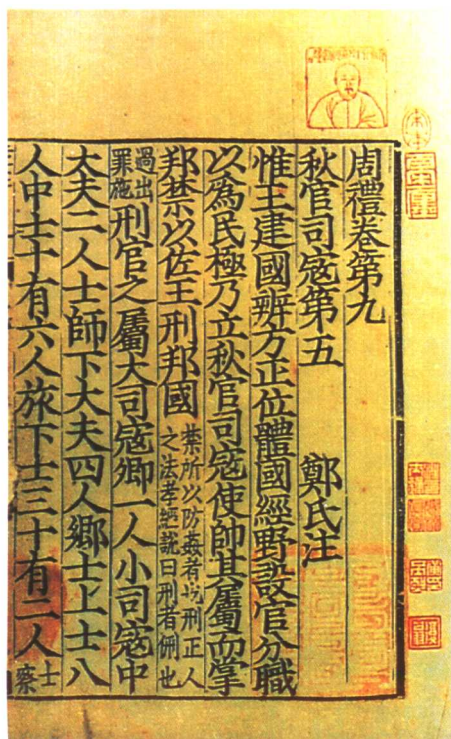 周禮卷第九
秋官司寇第五 鄭氏注
惟王建國辨方正位體國經野設官分職
以為民極乃立秋官司寇使帥其屬而掌
邦禁以佐王刑邦國 禁所以防姦者也刑正人
之法孝經說曰刑者侀也
過出
罪施 刑官之屬大司寇卿一人小司寇中
大夫二人士師下大夫四人鄉士上士八
人中士十有六人旅下士三十有二人 士
察